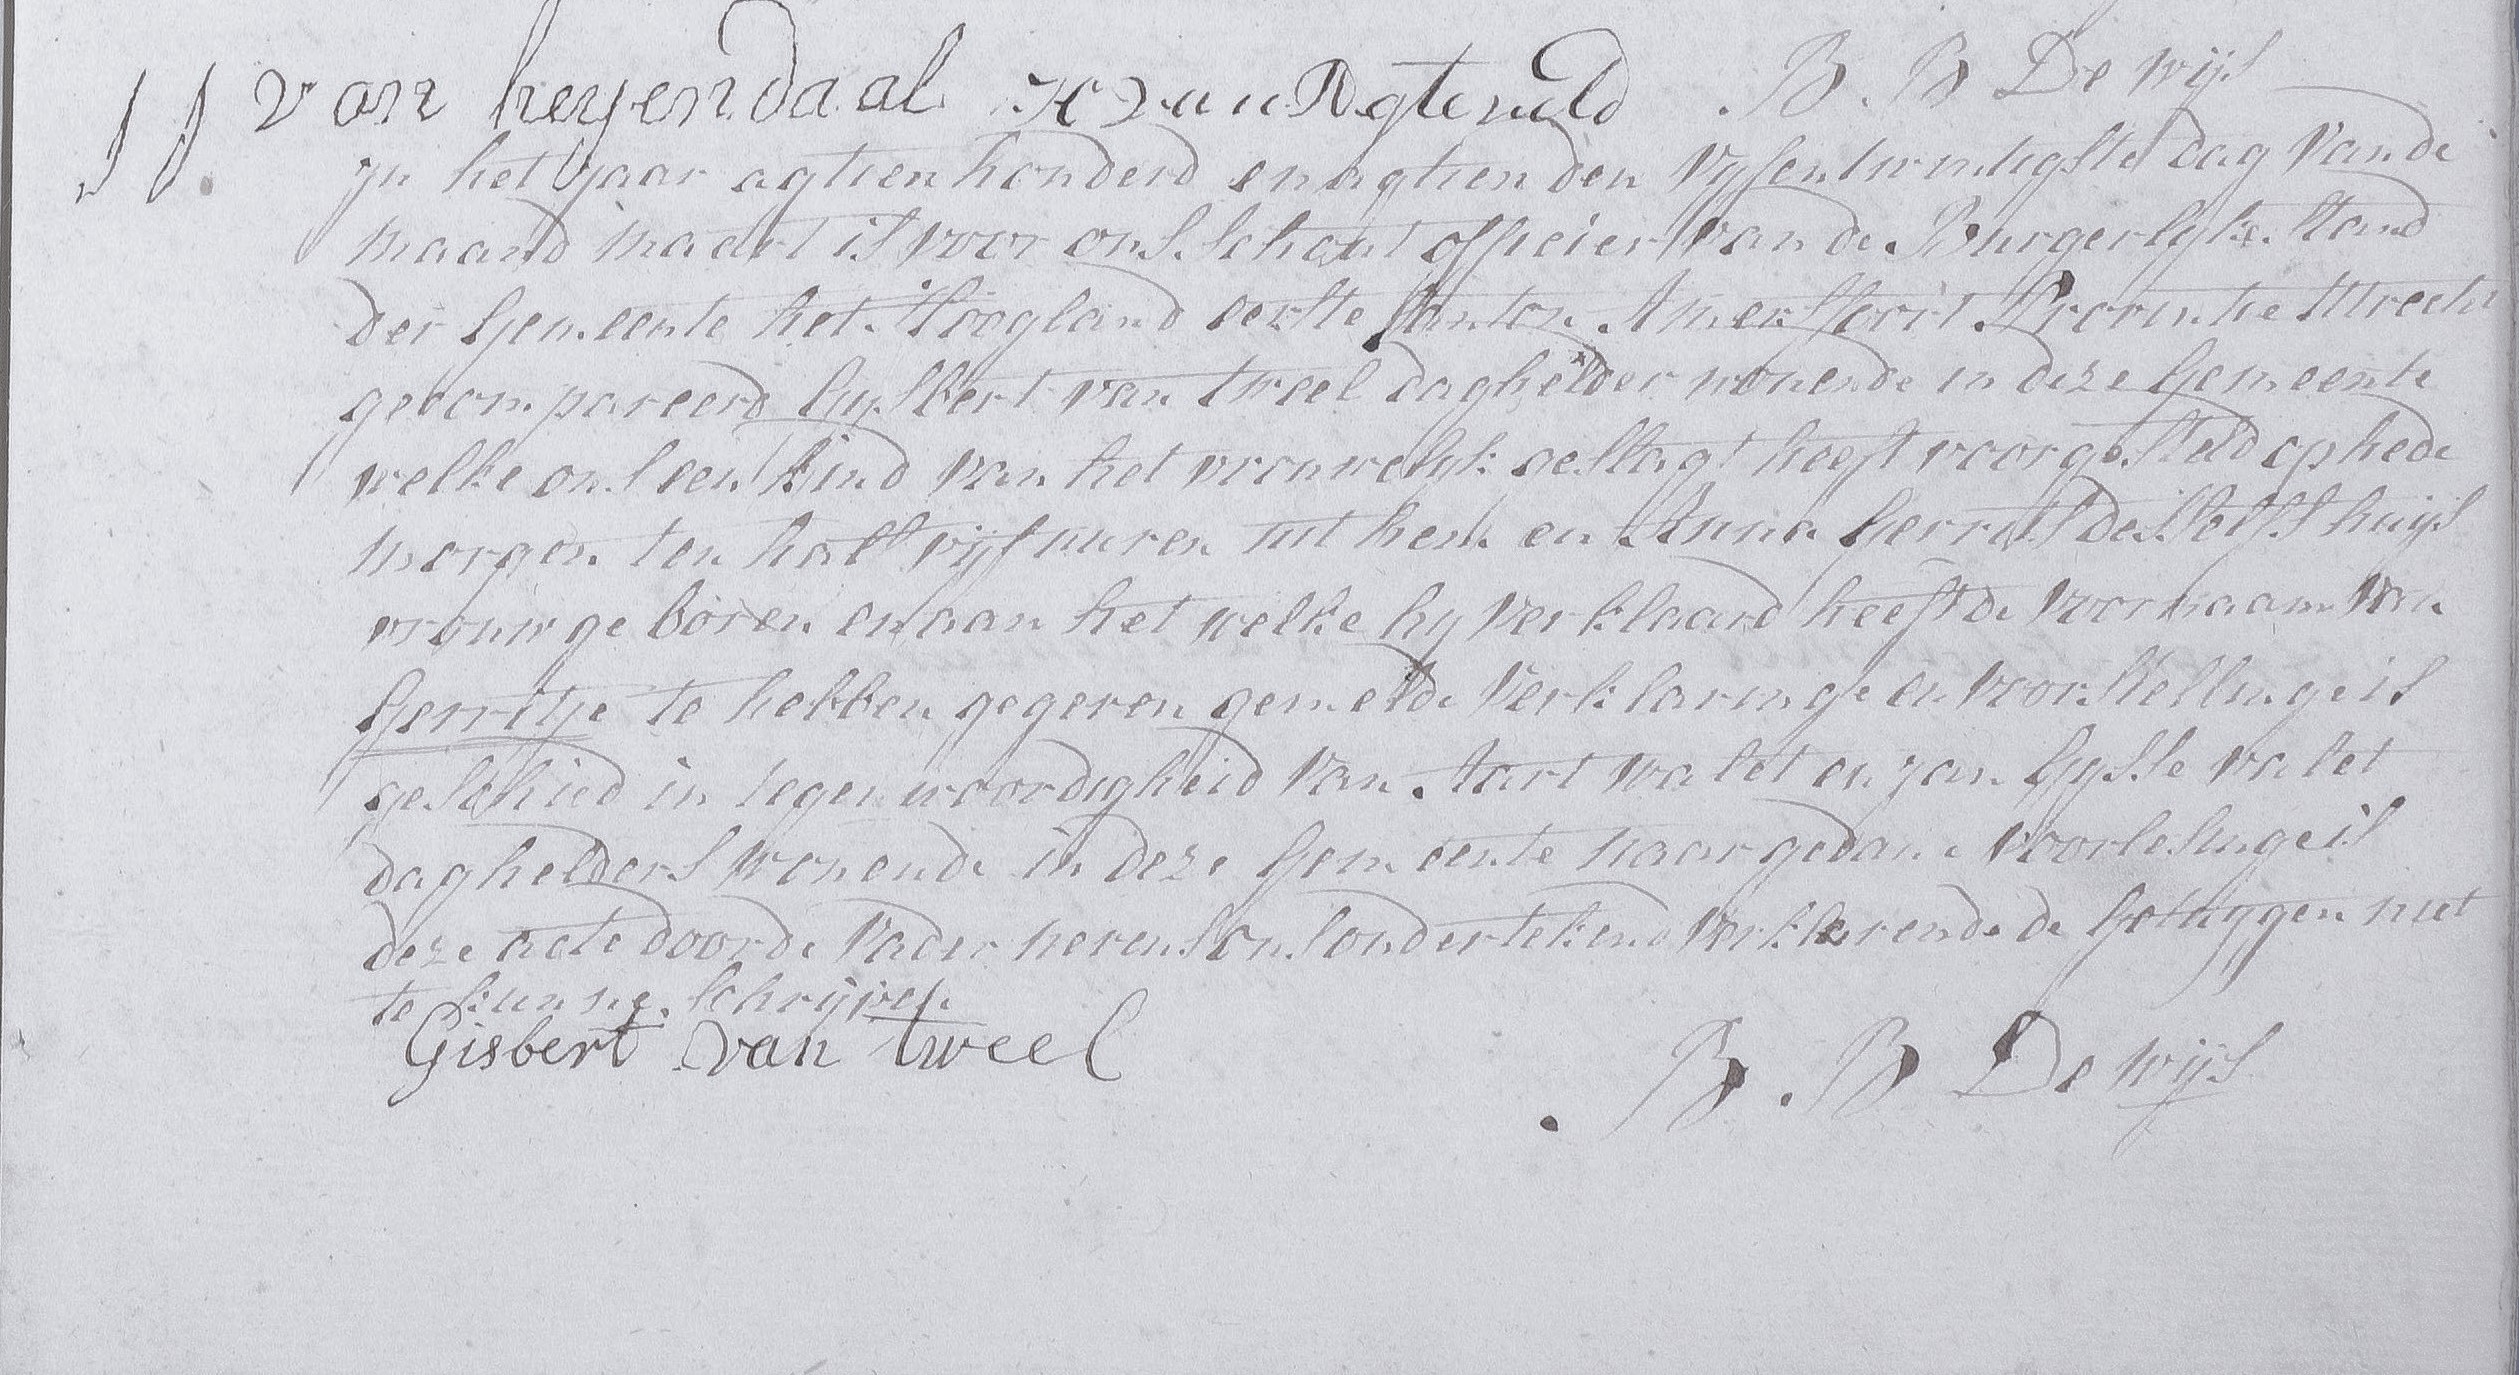 11. van heyendaal H van Agteveld B. B De wijs
in het jaar agtien honderd en agtien den vyfentwintigste dag van de
maand maart is voor ons Schout officier van de Burgerlyke Stand
der Gemeente het Hoogland eerste kanton Amersfoort Provintie Utrecht
gecompareerd Gysbert van tweel daghelder wonende in deze Gemeente
welke ons een kind van het vrouwelyk geslagt heeft voorgesteld op hede
morgen ten half vijf uuren uit hem en Anna Gerrits des
vrouw geboren en aan het welke hy verklaard heeft de voornaam van
Gerritje te hebben gegeven gemelde verklaringe en voorstellinge is
geschied in tegenwoordigheid van Aart valet en jan Gysse valet
daghelders wonende in deze Gemeente naar gedane voorlesinge is
deze acte door de vader nevens ons ondertekend verklarende de Getuygen niet
te kunne schrijven
Gisbert van tweel B. B De wijs